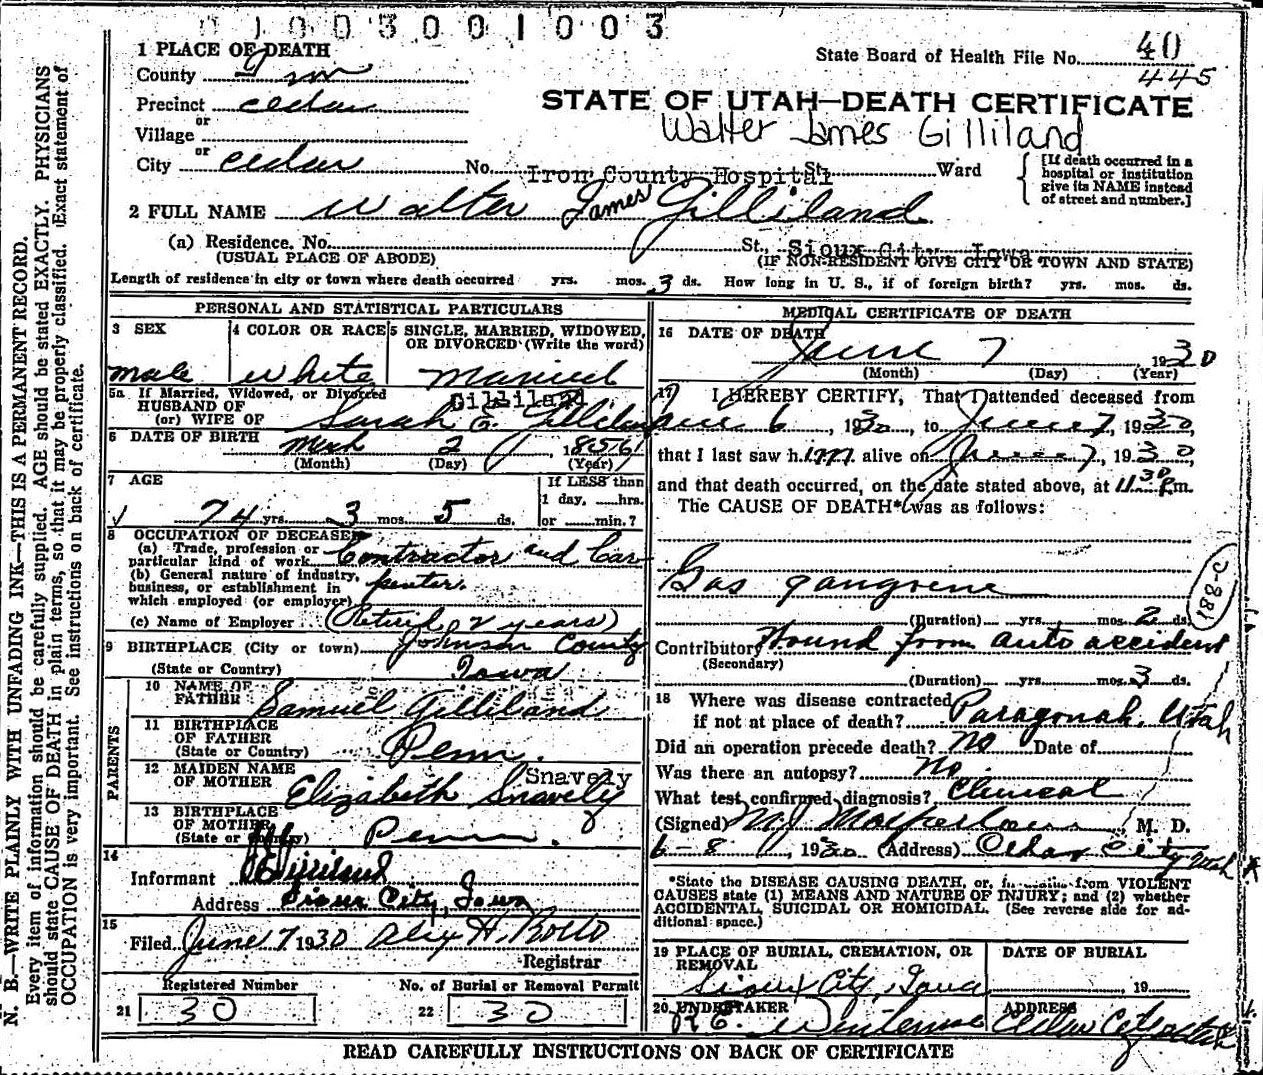 0 1 0 0 3 0 0 1 0 0 3
1 PLACE OF DEATH
State Board of Health File No. 40
445
County Iron
Precinct Cedar
STATE OF UTAH—DEATH CERTIFICATE
or
Village
Walter James Gilliland
or
City Cedar No. Iron County Hospital St. Ward
[If death occurred in a hospital or institution give its NAME instead of street and number.]
2 FULL NAME Walter James Gilliland
(a) Residence. No. St., Sioux City, Iowa.
(USUAL PLACE OF ABODE) (IF NON-RESIDENT GIVE CITY OR TOWN AND STATE)
Length of residence in city or town where death occurred yrs. mos. 3 ds. How long in U. S., if of foreign birth? yrs. mos. ds.
PERSONAL AND STATISTICAL PARTICULARS
3 SEX 4 COLOR OR RACE 5 SINGLE, MARRIED, WIDOWED, OR DIVORCED (Write the word)
male white married
5a If Married, Widowed, or Divorced
HUSBAND OF Gilliland
(or) WIFE OF Sarah E. Gilliland
6 DATE OF BIRTH Mch 2, 1856
(Month) (Day) (Year)
7 AGE If LESS than
1 day, hrs.
74 yrs. 3 mos. 5 ds. or min.?
8 OCCUPATION OF DECEASED
(a) Trade, profession or particular kind of work Contractor and Car-
(b) General nature of industry, business, or establishment in which employed (or employer) penter.
(c) Name of Employer (Retired 2 years)
9 BIRTHPLACE (City or town) Johnson County
(State or Country) Iowa
PARENTS
10 NAME OF FATHER Samuel Gilliland
11 BIRTHPLACE OF FATHER (State or Country) Penn.
12 MAIDEN NAME OF MOTHER Elizabeth Snavely
Snavely
13 BIRTHPLACE OF MOTHER (State or Country) Penn.
14
Informant Gilliland
Address Sioux City, Iowa
15
Filed June 7 1930
Registrar
Registered Number No. of Burial or Removal Permit
21 30 22 30
MEDICAL CERTIFICATE OF DEATH
16 DATE OF DEATH
June 7 1930
(Month) (Day) (Year)
17 I HEREBY CERTIFY, That I attended deceased from
June 6, 1930, to June 7, 1930,
that I last saw him alive on June 7, 1930
and that death occurred, on the date stated above, at 11.30 P.m.
The CAUSE OF DEATH* was as follows:
Gas gangrene
188-c
(Duration) yrs. mos. 2 ds.
Contributory Wound from auto accident
(Secondary)
(Duration) yrs. mos. 3 ds.
18 Where was disease contracted
if not at place of death? Paragonah, Utah
Did an operation precede death? No Date of
Was there an autopsy? No
What test confirmed diagnosis? Clinical
(Signed) M. D.
6-8, 1930 (Address) Cedar City Utah
*State the DISEASE CAUSING DEATH, or, in deaths from VIOLENT CAUSES state (1) MEANS AND NATURE OF INJURY; and (2) whether ACCIDENTAL, SUICIDAL OR HOMICIDAL. (See reverse side for additional space.)
19 PLACE OF BURIAL, CREMATION, OR REMOVAL DATE OF BURIAL
Sioux City, Iowa , 19
20 UNDERTAKER ADDRESS
Cedar City Utah
READ CAREFULLY INSTRUCTIONS ON BACK OF CERTIFICATE
N. B.—WRITE PLAINLY WITH UNFADING INK—THIS IS A PERMANENT RECORD.
Every item of information should be carefully supplied. AGE should be stated EXACTLY. PHYSICIANS
should state CAUSE OF DEATH in plain terms, so that it may be properly classified. Exact statement of
OCCUPATION is very important. See instructions on back of certificate.